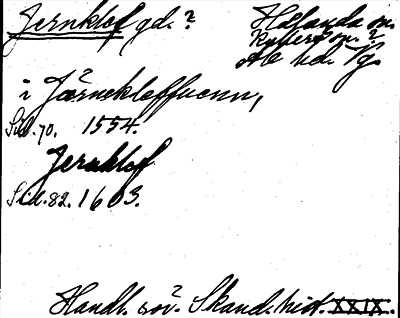 Jernklef gd.?
Hålanda sn.
Ryhers sn.?
Ale hd. Vg.
i Jærnekleffuenn,
Sid. 70. 1554.
Jernklef
Sid. 82. 1603.
Handl. rör. Skand. hist. XXIX.